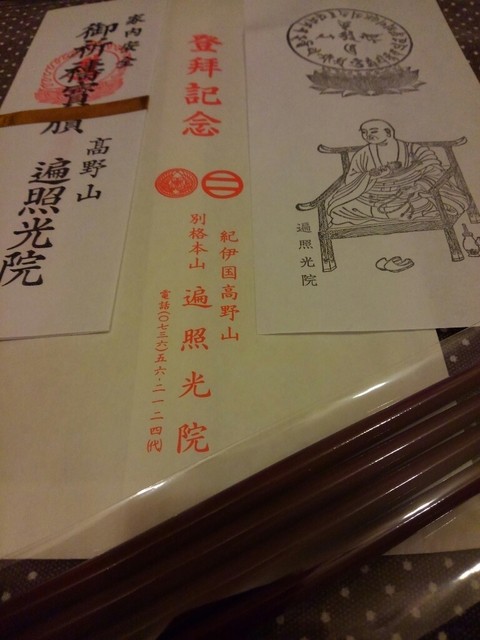 登拜記念
紀伊国高野山
別格本山
遍照光院
電話(〇七三六)五六-二一二四(代)
家内安全
御祈禱寳牘
高野山
遍照光院
遍照光院